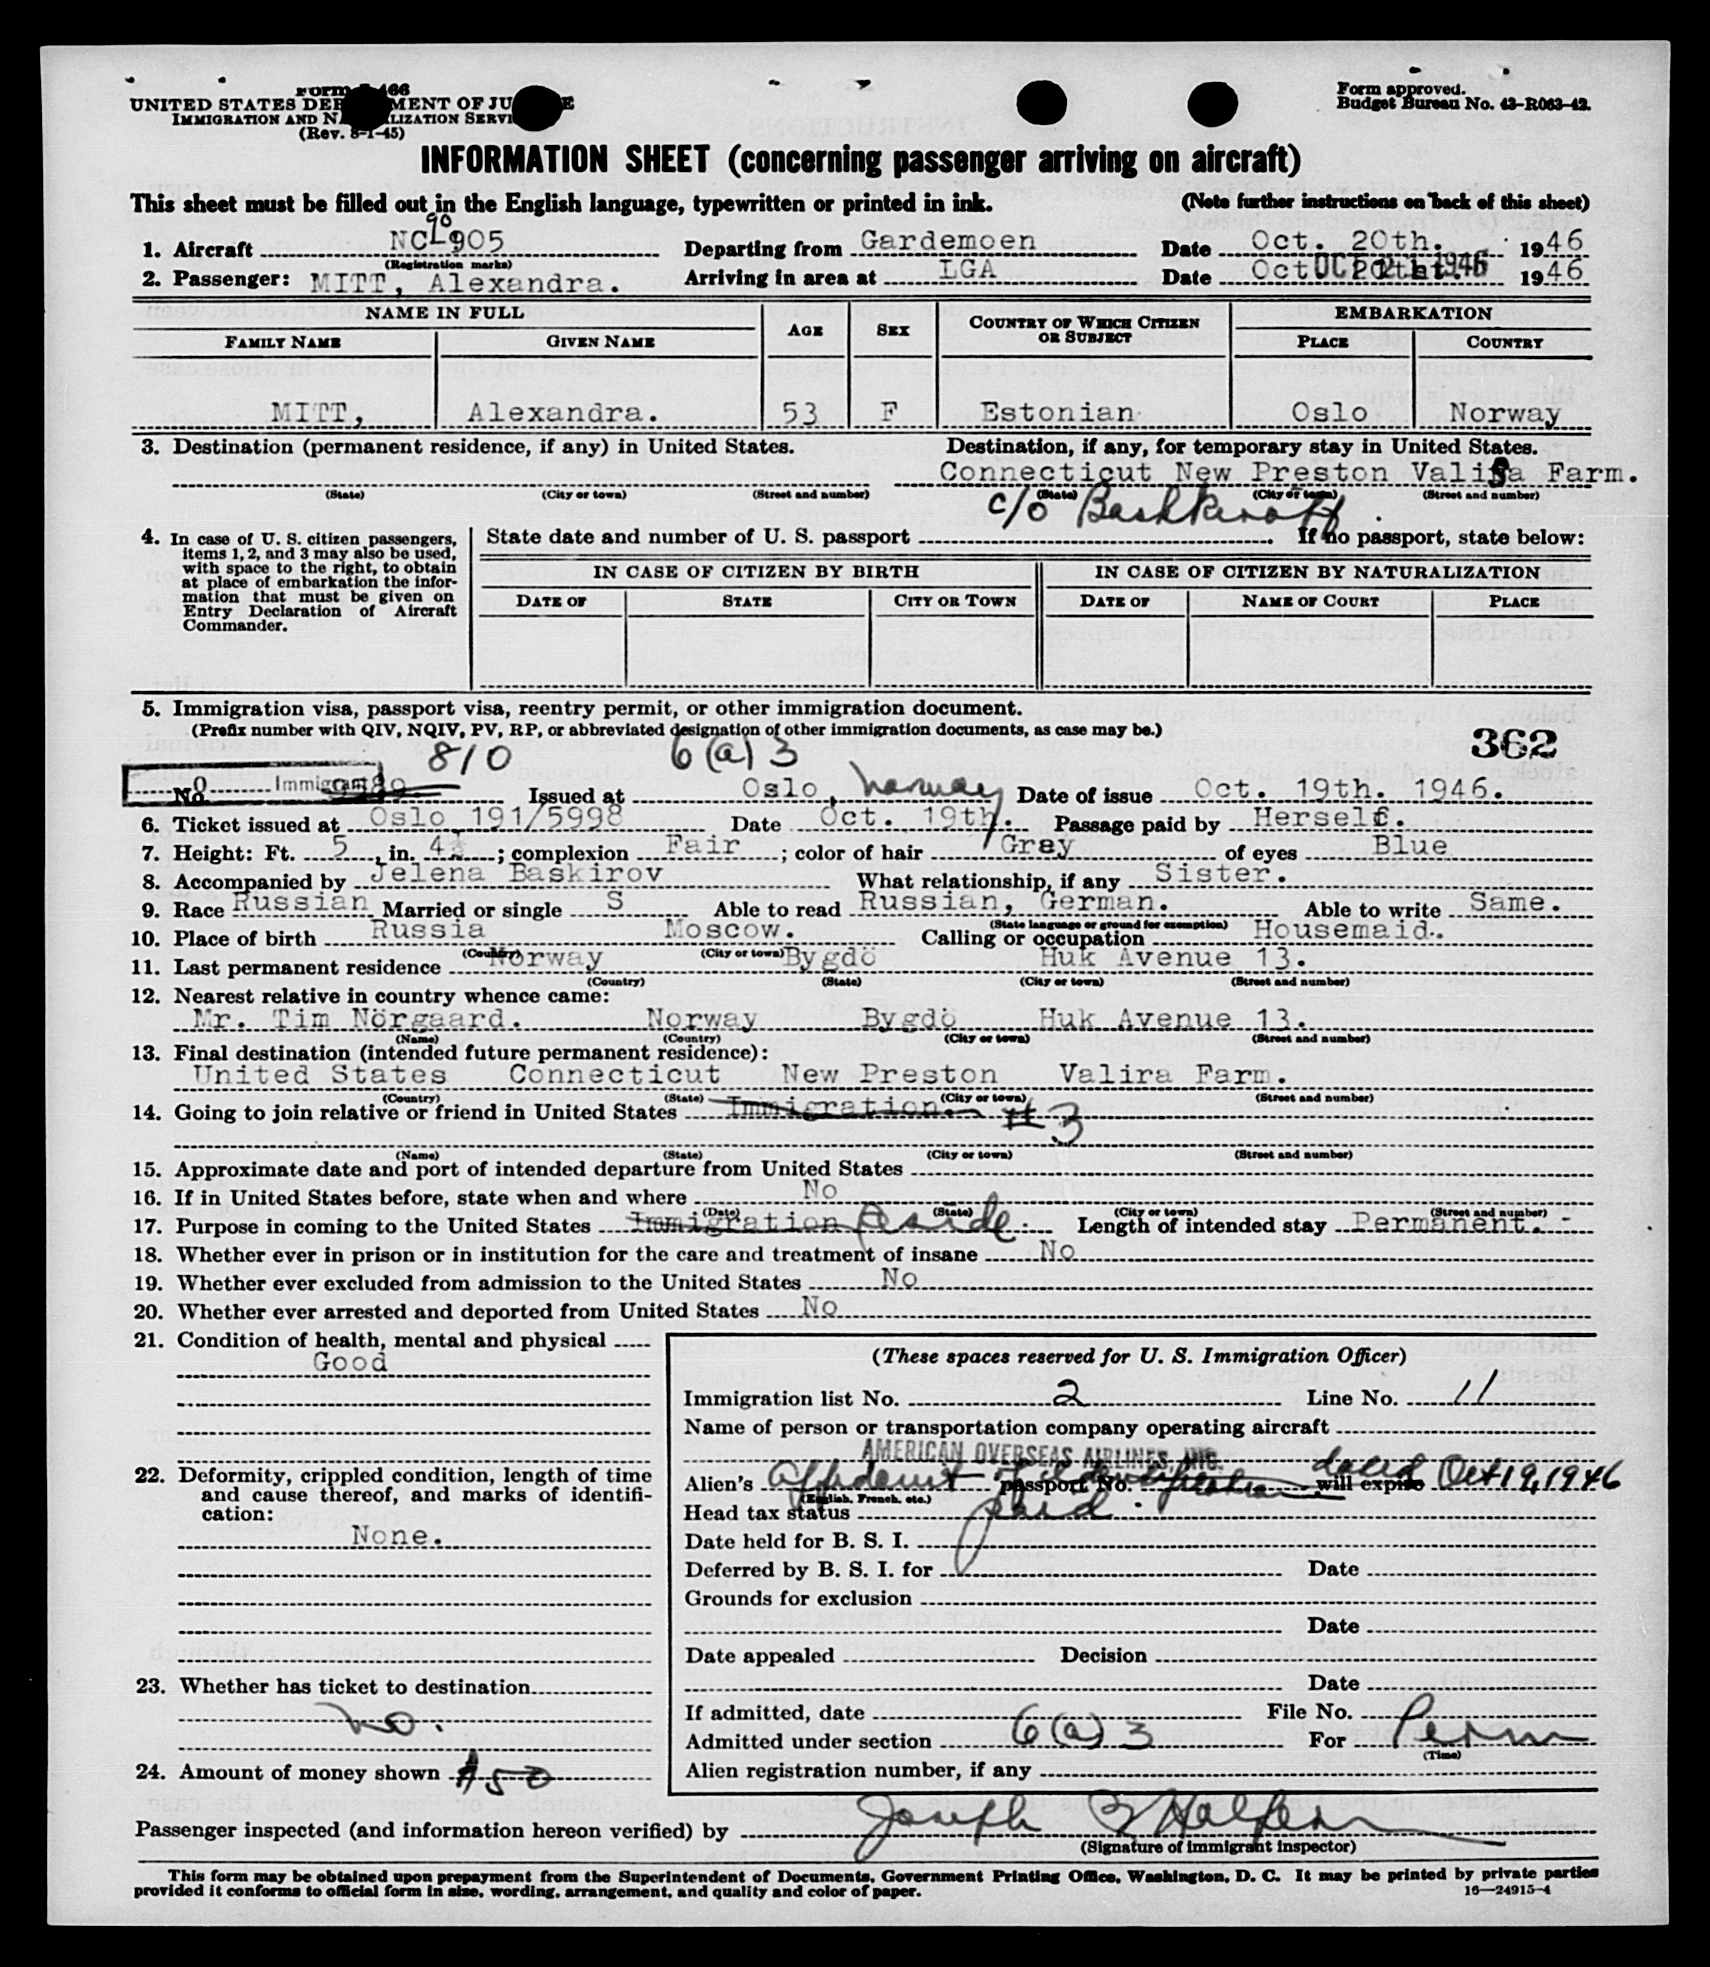 Form I-466
UNITED STATES DEPARTMENT OF JUSTICE
IMMIGRATION AND NATURALIZATION SERVICE
(Rev. 8-1-45)
Form approved.
Budget Bureau No. 43-R063-42.
INFORMATION SHEET (concerning passenger arriving on aircraft)
This sheet must be filled out in the English language, typewritten or printed in ink. (Note further instructions on back of this sheet)
90
1. Aircraft NC-905 Departing from Gardemoen Date Oct. 20th. 1946
(Registration marks)
2. Passenger: MITT, Alexandra. Arriving in area at LGA Date Oct. OCT 21 1946 1946
NAME IN FULL AGE SEX COUNTRY OF WHICH CITIZEN OR SUBJECT EMBARKATION
FAMILY NAME GIVEN NAME PLACE COUNTRY
MITT, Alexandra. 53 F Estonian Oslo Norway
3. Destination (permanent residence, if any) in United States. Destination, if any, for temporary stay in United States.
Connecticut New Preston Valira Farm.
(State) (City or town) (Street and number) (State) (City or town) (Street and number)
c/o Bashkiroff
4. In case of U. S. citizen passengers, items 1, 2, and 3 may also be used, with space to the right, to obtain at place of embarkation the information that must be given on Entry Declaration of Aircraft Commander.
State date and number of U. S. passport . If no passport, state below:
IN CASE OF CITIZEN BY BIRTH IN CASE OF CITIZEN BY NATURALIZATION
DATE OF STATE CITY OR TOWN DATE OF NAME OF COURT PLACE
5. Immigration visa, passport visa, reentry permit, or other immigration document.
(Prefix number with QIV, NQIV, PV, RP, or abbreviated designation of other immigration documents, as case may be.)
362
810 6(a)3
No. Immigrant Issued at Oslo, Norway Date of issue Oct. 19th. 1946.
6. Ticket issued at Oslo 191/5998 Date Oct. 19th. Passage paid by Herself.
7. Height: Ft. 5, in. 4½; complexion Fair; color of hair Gray of eyes Blue
8. Accompanied by Jelena Baskirov What relationship, if any Sister.
9. Race Russian Married or single S Able to read Russian, German. Able to write Same.
(State language or ground for exemption)
10. Place of birth Russia Moscow. Calling or occupation Housemaid.
(Country) (City or town)
11. Last permanent residence Norway Bygdö Huk Avenue 13.
(Country) (State) (City or town) (Street and number)
12. Nearest relative in country whence came:
Mr. Tim Nörgaard. Norway Bygdö Huk Avenue 13.
(Name) (Country) (City or town) (Street and number)
13. Final destination (intended future permanent residence):
United States Connecticut New Preston Valira Farm.
(Country) (State) (City or town) (Street and number)
14. Going to join relative or friend in United States Immigration. #3
(Name) (State) (City or town) (Street and number)
15. Approximate date and port of intended departure from United States
16. If in United States before, state when and where No
(Date) (State) (City or town) (Street and number)
17. Purpose in coming to the United States Immigration Reside. Length of intended stay Permanent. -
18. Whether ever in prison or in institution for the care and treatment of insane No
19. Whether ever excluded from admission to the United States No
20. Whether ever arrested and deported from United States No
21. Condition of health, mental and physical
Good
22. Deformity, crippled condition, length of time and cause thereof, and marks of identification:
None.
23. Whether has ticket to destination
no.
24. Amount of money shown $50
(These spaces reserved for U. S. Immigration Officer)
Immigration list No. 2 Line No. 11
Name of person or transportation company operating aircraft
AMERICAN OVERSEAS AIRLINES, INC.
Alien's Affidavit of Identification passport No. will expire dated Oct 19, 1946
(English, French, etc.)
Head tax status paid
Date held for B. S. I.
Deferred by B. S. I. for Date
Grounds for exclusion
Date
Date appealed Decision
Date
If admitted, date File No.
Admitted under section 6(a)3 For Perm
(Time)
Alien registration number, if any
Passenger inspected (and information hereon verified) by Joseph Halpern
(Signature of immigrant inspector)
This form may be obtained upon prepayment from the Superintendent of Documents, Government Printing Office, Washington, D. C. It may be printed by private parties
provided it conforms to official form in size, wording, arrangement, and quality and color of paper. 16—24915-4